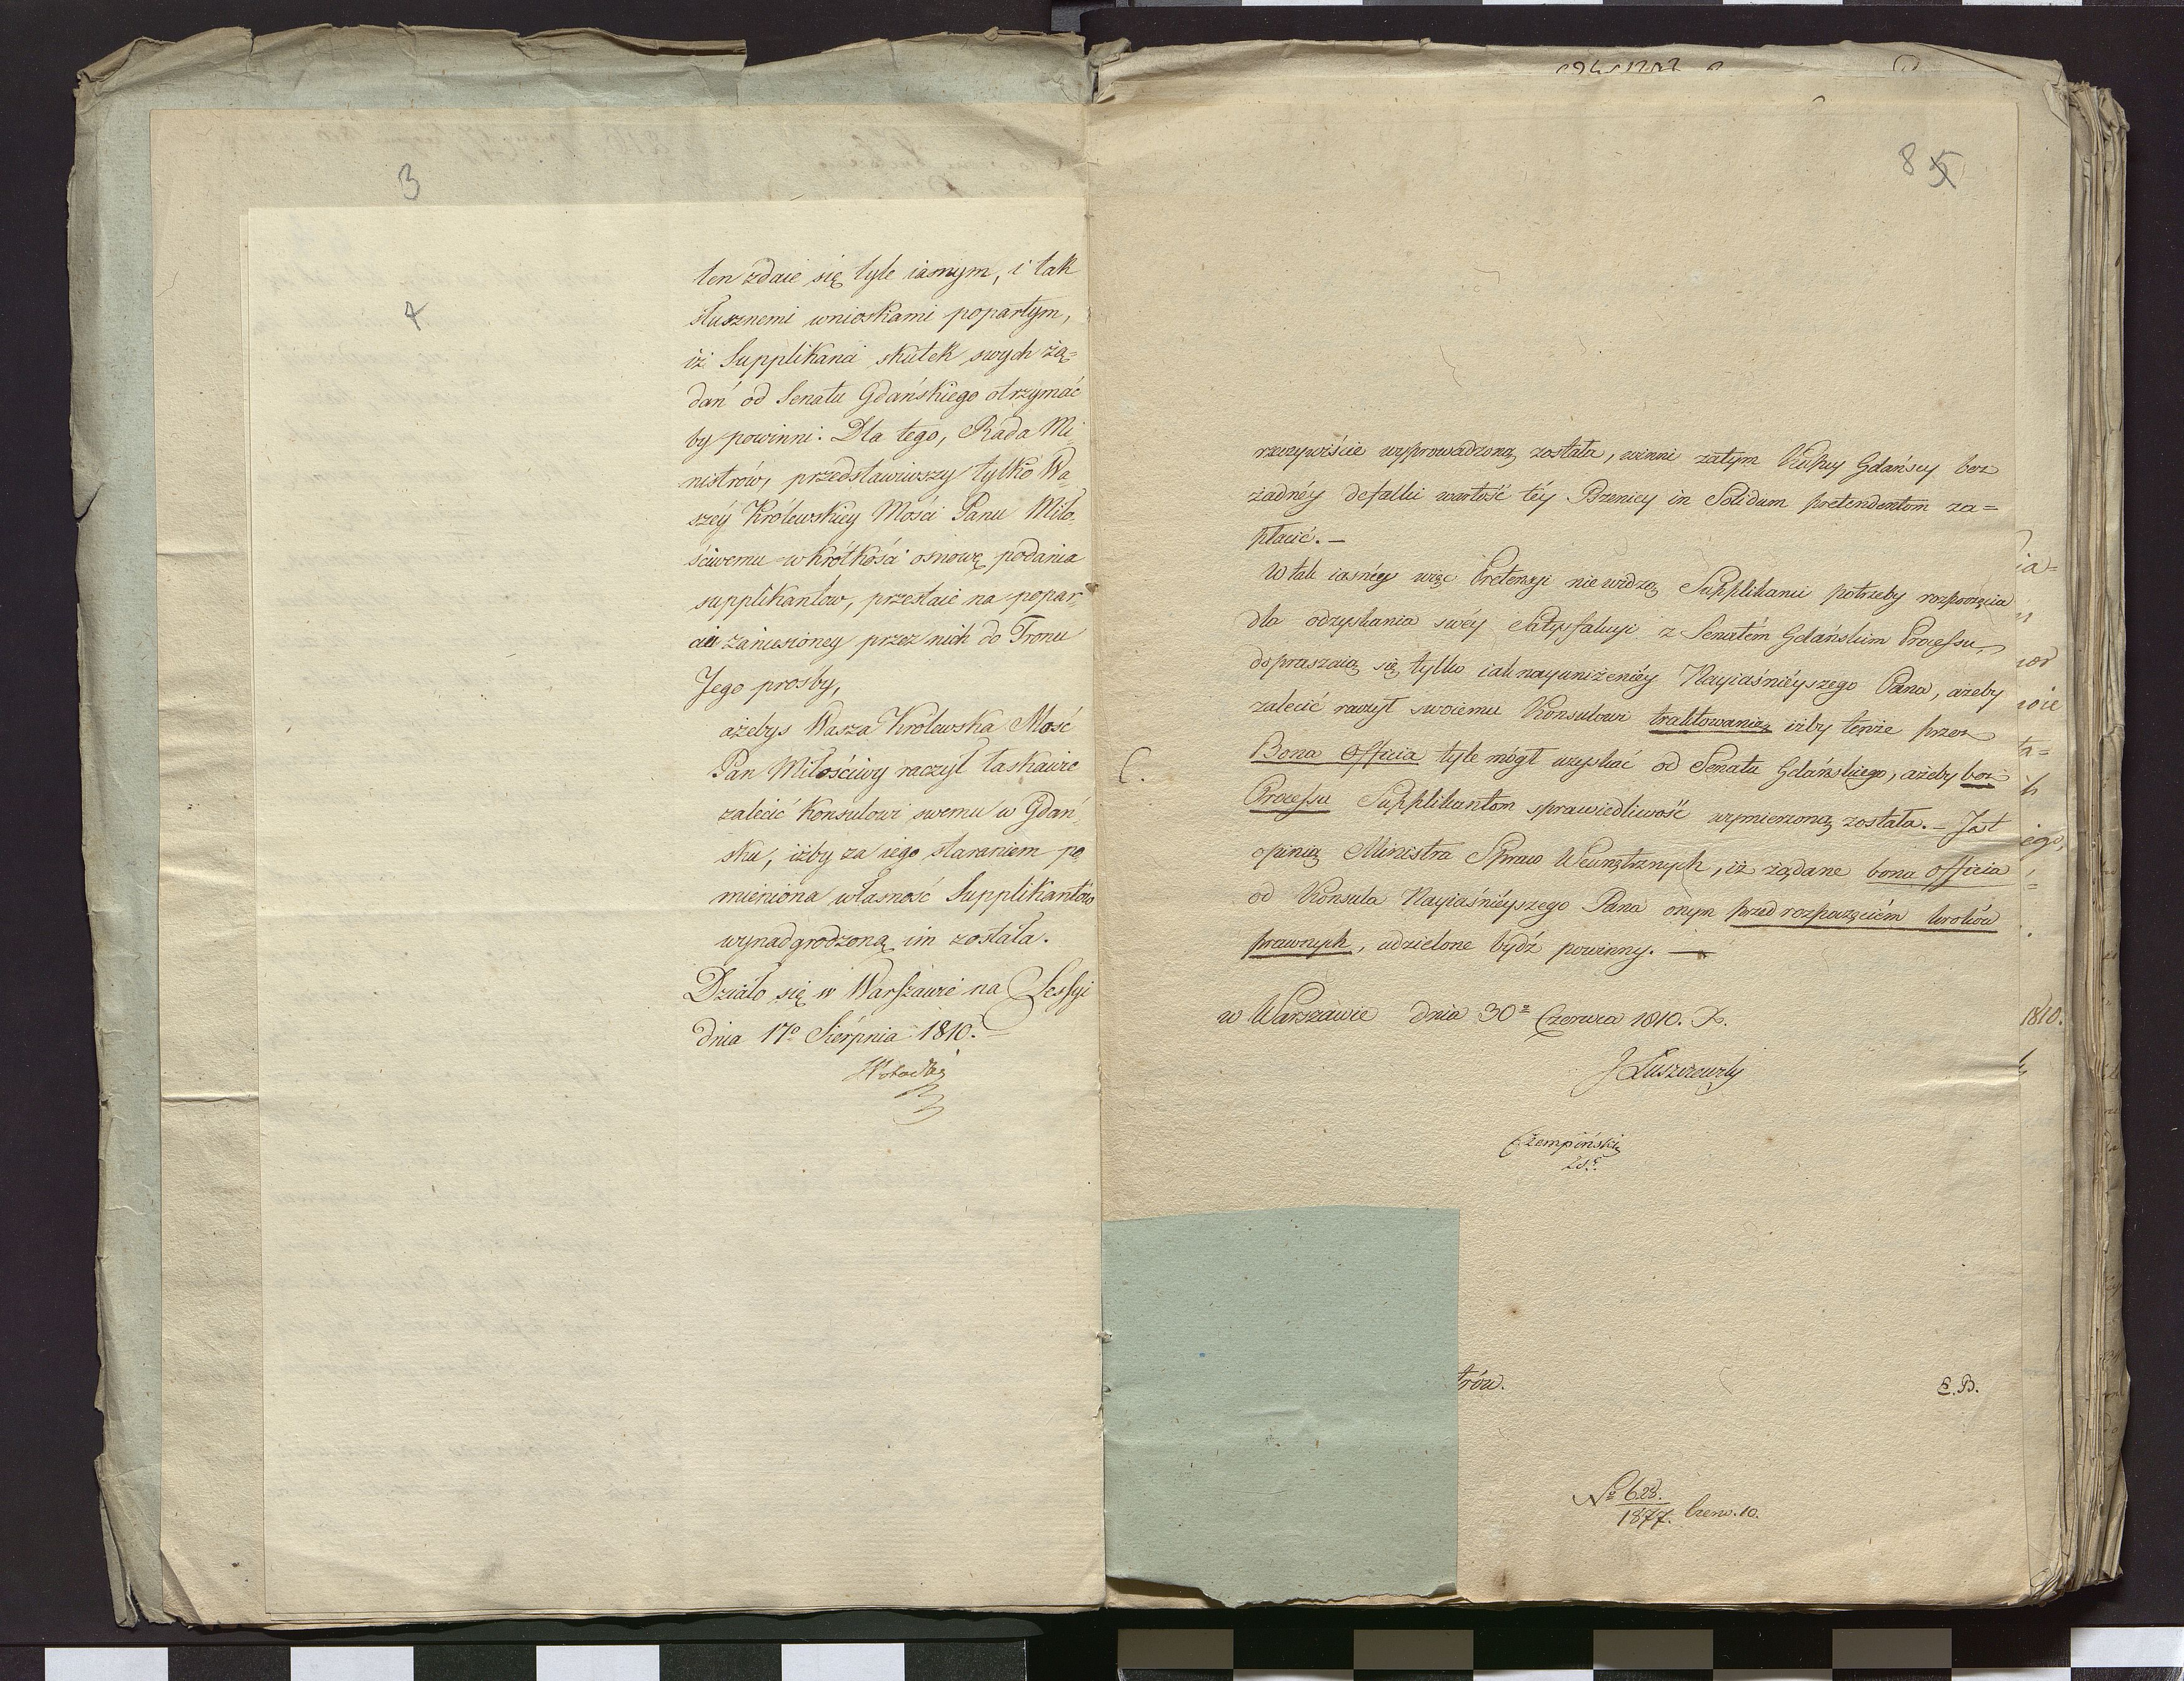 3
4
ten zdaie się tyle iasnym, i tak
słusznemi wnioskami popartym,
iż Supplikanci skutek swych żą=
dań od Senatu Gdańskiego otrzymać
by powinni. Dla tego, Rada Mi-
nistrów, przedstawiwszy tylko Wa-
széy Królewskiey Mości Panu Miło-
ściwemu w krótkości osnowę podania
supplikantow, przestaie na popar-
ciu zaniesioney przez nich do Tronu
Jego prośby,
ażebyś Wasza Królewska Mość
Pan Miłościwy raczył łaskawie
zalecić Konsulowi swemu w Gdań-
sku, iżby za iego staraniem po-
mieniona własność Supplikantów
wynadgrodzoną im została.
Działo się w Warszawie na Sessyi
dnia 17º Sierpnia 1810.
85
rzeczywiście wyprowadzoną została, winni zatym Kupcy Gdańscy bez
żadnéy defalki wartość téy Pszenicy in Solidum pretendentom za=
płacić. –
W tak iasnéy więc Pretensyi nie widzą Supplikanci potrzeby rozpoczęcia
dla odzyskania swéy satysfakcyi z Senatém Gdańskim Processu,
dopraszaią się tylko iak nayuniżeniéy Nayiaśniéyszego Pana, ażeby
zalecić raczył swoiemu Konsulowi traktowanie, iżby tenże przez
C. Bona Officia tyle mógł uzyskać od Senatu Gdańskiego, ażeby bez
Processu Supplikantom sprawiedliwość wymierzoną została. – Jest
opinią Ministra Spraw Wewnętrznych, iż żądane bona officia
od Konsula Nayiaśniéyszego Pana onym przed rozpoczęciém kroków
prawnych, udzielone bydź powinny. —
w Warszawie dnia 30º Czerwca 1810. R.
J Łuszczewsky
Czempiński
trów.
E. B.
Nº 623.
1877. Czerw. 10.
1810.